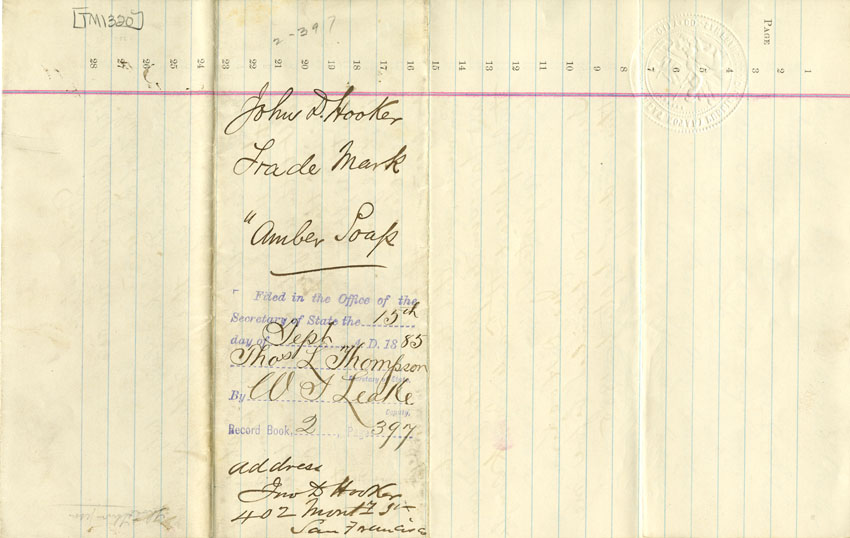 [TM1320]
2-397
PAGE
1
2
3
4
5
6
7
8
9
10
11
12
13
14
15
16
17
18
19
20
21
22
23
24
25
26
27
28
John D. Hooker
Trade Mark
"Amber Soap
Filed in the Office of the
Secretary of State the 15th
day of Sept A.D. 1885
Thos L Thompson
Secretary of State.
By W T Leake
Deputy.
Record Book 2, Page 397
address
Jno D Hooker
402 Montg St
San Francisco